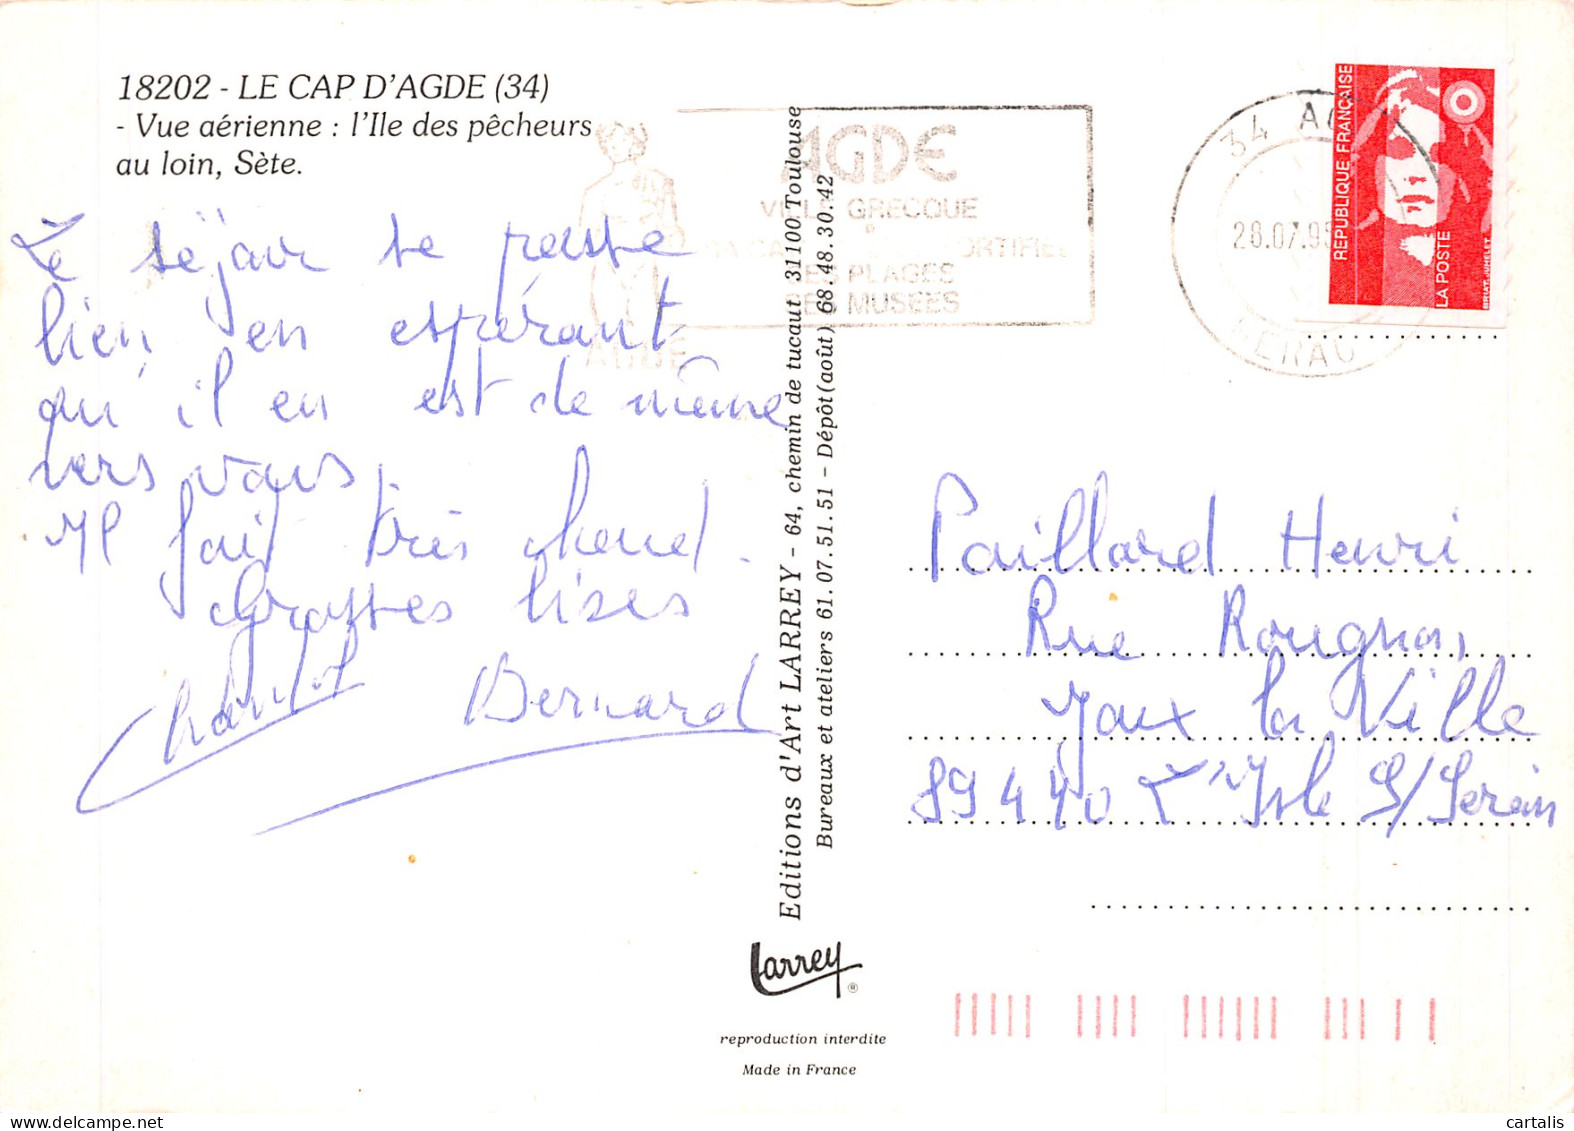 18202 - LE CAP D'AGDE (34)
- Vue aérienne : l'Ile des pêcheurs
au loin, Sète.
Le séjour se passe
bien, en espérant
qu'il en est de même
vers vous.
Il fait très chaud.
Grosses bises
Chantal Bernard
AGDE
AGDE
VILLE GRECQUE
ORTIFIE
SES PLAGES
SES MUSEES
Editions d'Art LARREY - 64, chemin de tucaut 31100 Toulouse
Bureaux et ateliers 61.07.51.51 - Dépôt (août) 68.48.30.42
34 AG
28.07.95
HERAU
REPUBLIQUE FRANÇAISE
LA POSTE
BRIAT. JUMELET
Paillard Henri
Rue Rougnon,
Joux la Ville
89440 L'Isle S/Serein
Larrey
®
reproduction interdite
Made in France
cartalis